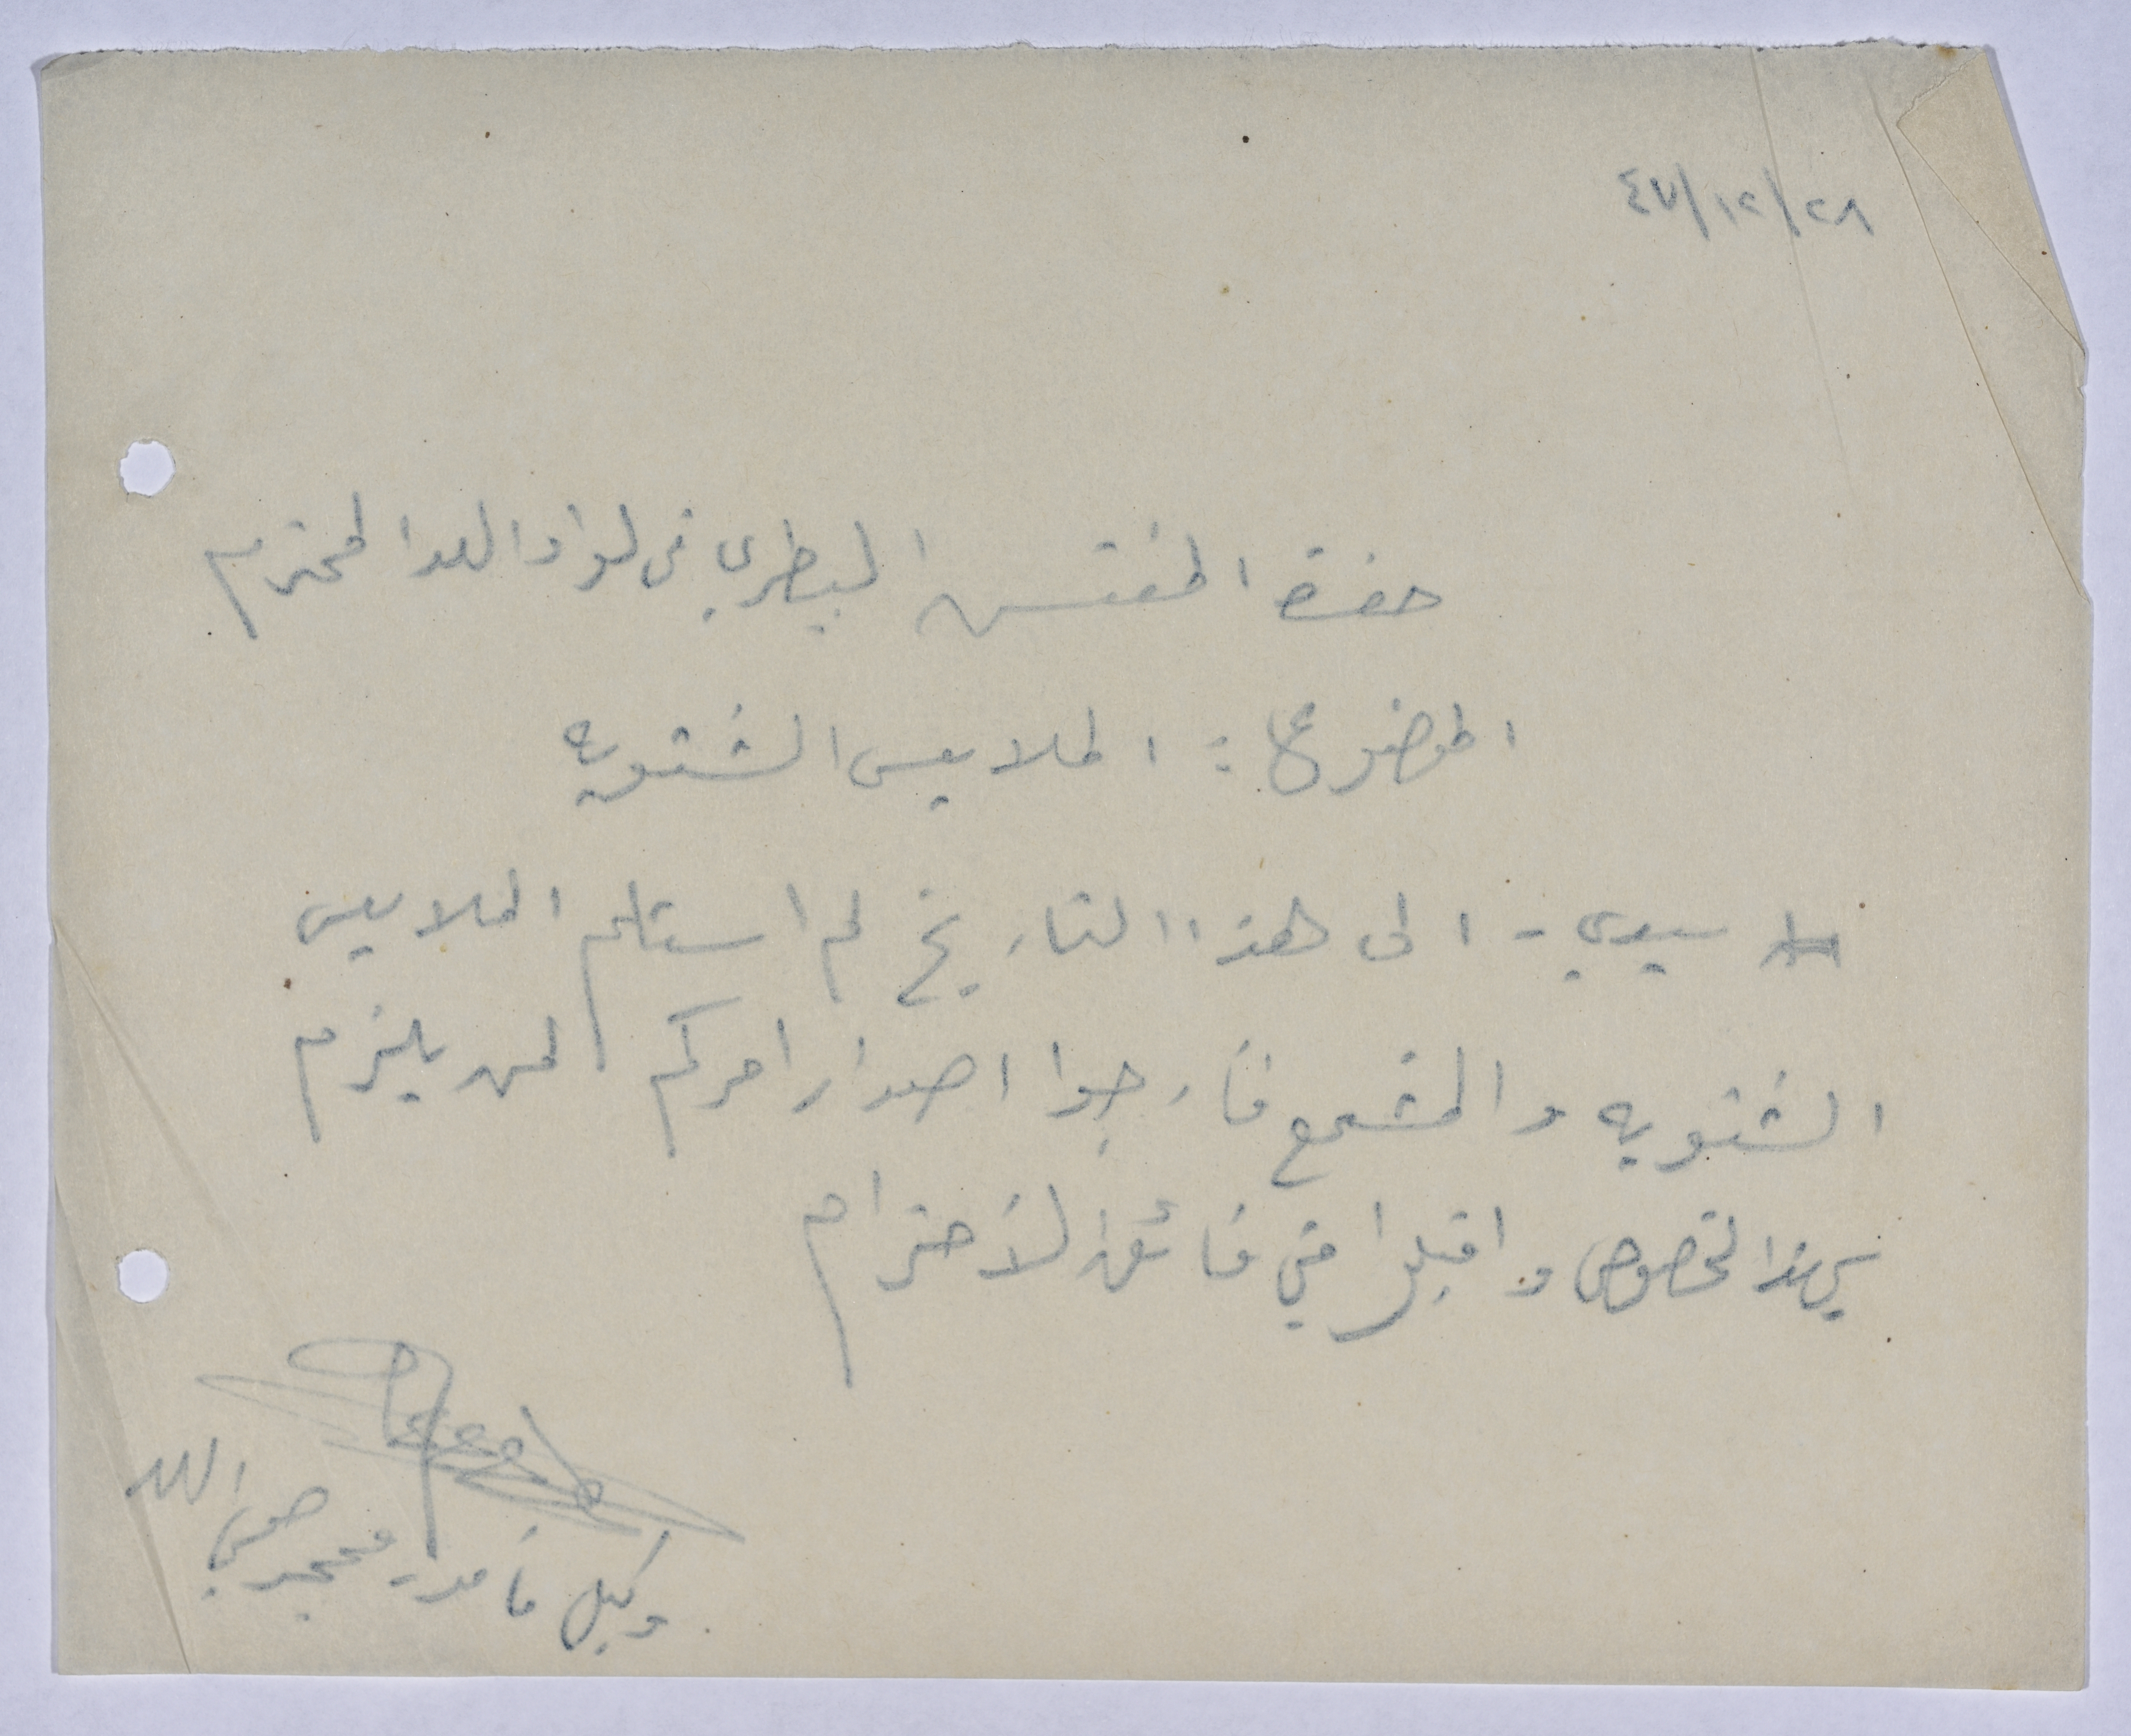 ٤٧/١٢/٢٨
حضرة المفتش البيطري في لواء اللد المحترم
الموضوع : الملابس الشتويه
سيدي - الى هذا التاريخ لم استلم الملابس
الشتويه والمشمع فارجوا اصدار امركم لمن يلزم
بهذا الخصوص واقبلوا مني فائق الاحترام
وكيل مامور محجر